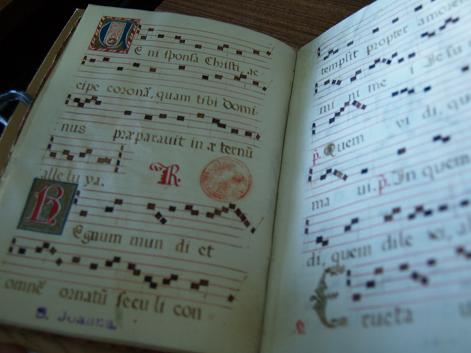 Veni sponsa Christi, ac
cipe coronã, quam tibi Domi-
nus præparavit in æ ternũ
alleluya. R
Regnum mun di et
omnẽ ornatũ seculi con
S. Juana.
tempsit propter amorẽ
mi ni me i Jesu
℣. Quem vi di, quem
ma ui. ℣. In quem
di, quem dile xi, al
Eructa